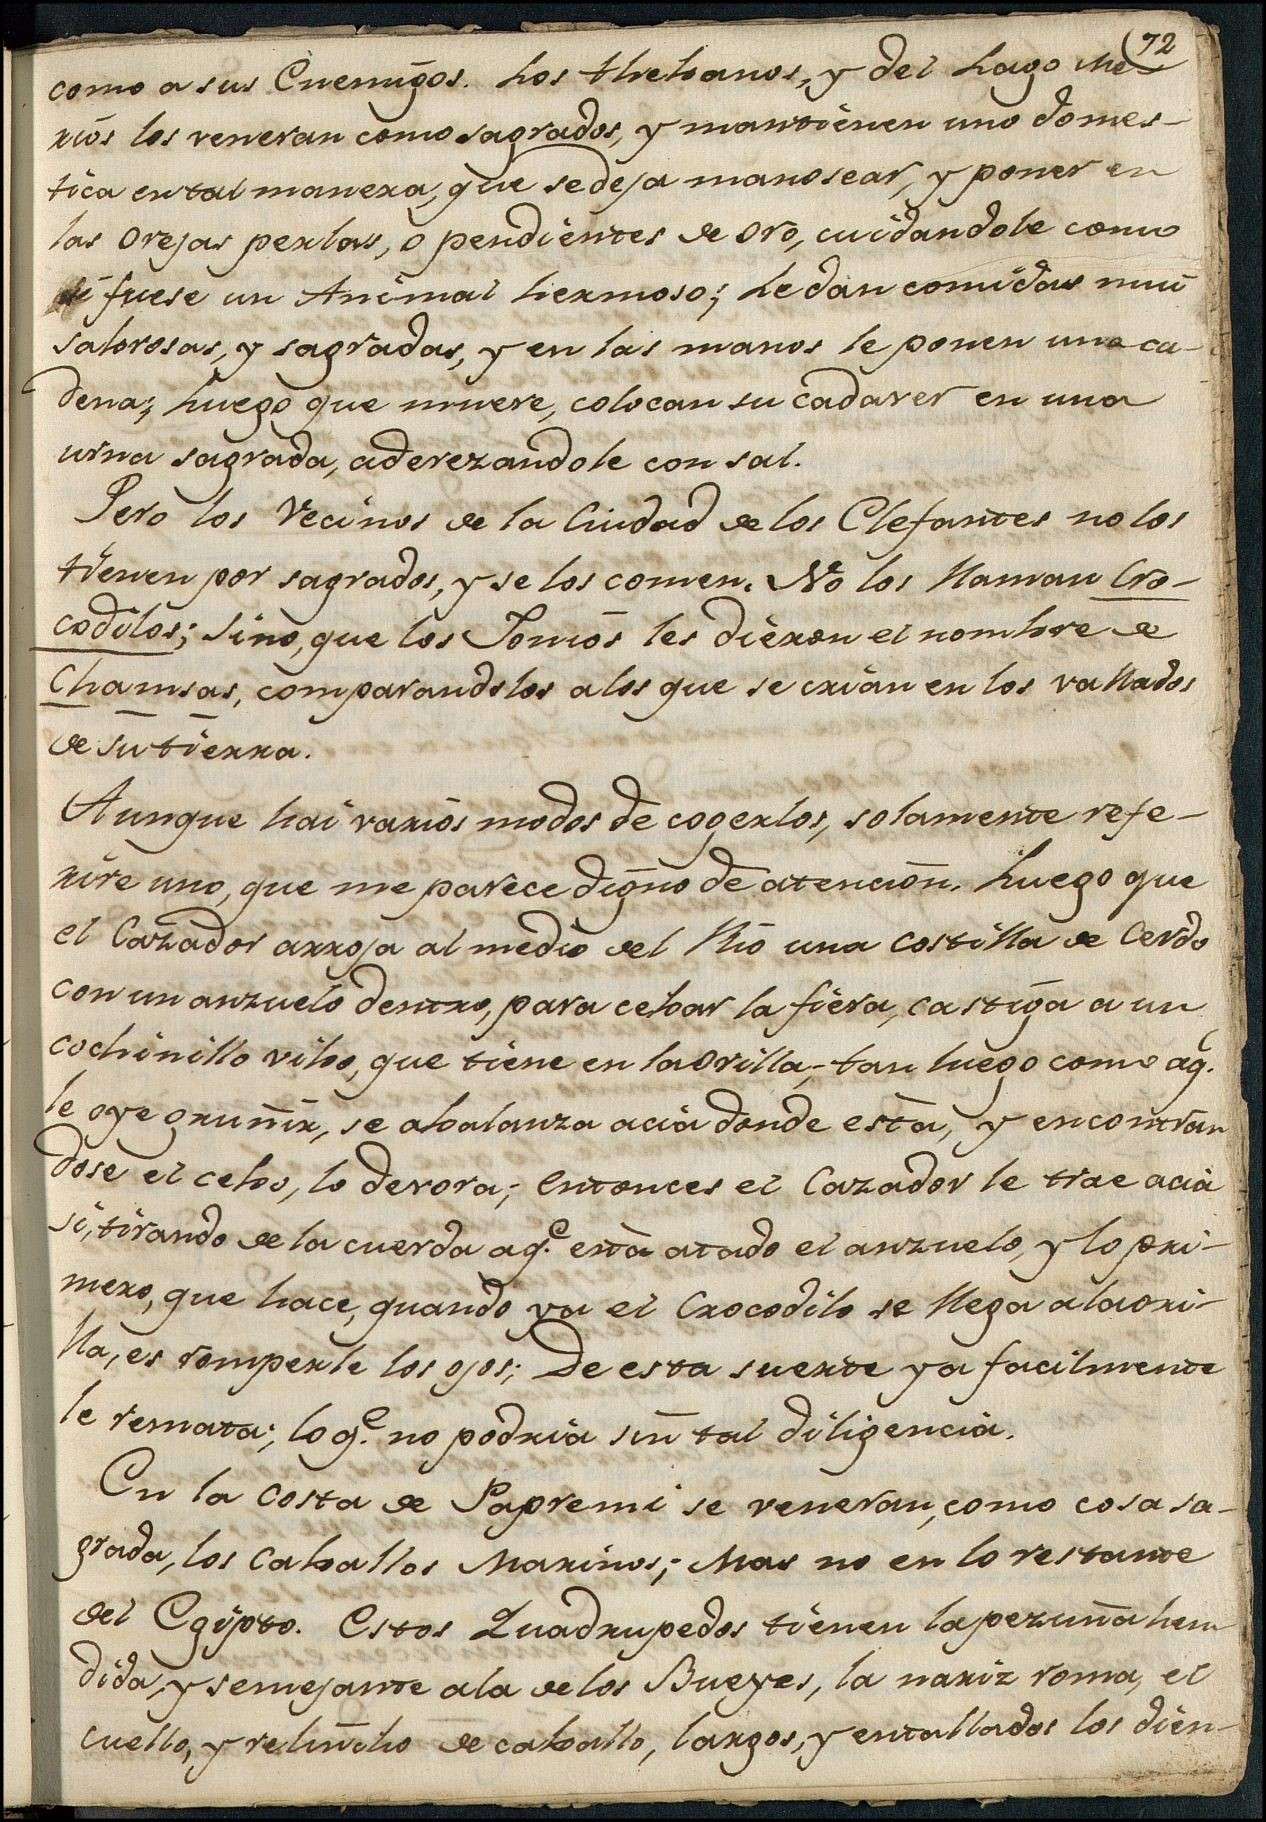 72
como a sus Enemigos. Los thebanos, y del Lago Me
rios los veneran como sagrados, y mantienen uno domes-
tica en tal manera, que se deja manosear, y poner en
las Orejas perlas, o pendientes de Oro, cuidandole como
si fuese un Animal hermoso; Le dan comidas mui
sabrosas, y sagradas, y en las manos le ponen una ca-
dena; Luego que muere, colocan su cadaver en una
urna sagrada, aderezandole con sal.
Pero los Vecinos de la Ciudad de los Elefantes no los
tienen por sagrados, y se los comen. No los llaman Cro-
codilos; sino, que los Jonios les dieron el nombre de
Chamsas, comparandolos a los que se crian en los vallados
de su tierra.
Aunque hai varios modos de cogerlos, solamente refe-
rire uno, que me parece digno de atencion. Luego que
el Cazador arroja al medio del Rio una costilla de Cerdo
con un anzuelo dentro, para cebar la fiera, castiga a un
cochinillo vibo, que tiene en la Orilla; tan luego como aq.l
le oye gruñir, se abalanza acia donde està, y encontran
dose el cebo, lo devora; entonces el Cazador le trae acia
sì, tirando de la cuerda a q.e està atado el anzuelo, y lo pri-
mero, que hace, quando ya el Crocodilo se llega a la ori-
lla, es romperle los ojos; De esta suerte ya facilmente
le remata; lo q.e no podria sin tal diligencia.
En la costa de Papremi se veneran, como cosa sa-
grada, los Caballos Marinos; Mas no en lo restante
del Egipto. Estos Quadrupedos tienen la pezuña hen
dida, y semejante a la de los Bueyes, la nariz roma, el
cuello, y relincho de caballo, largos, y entallados los dien-